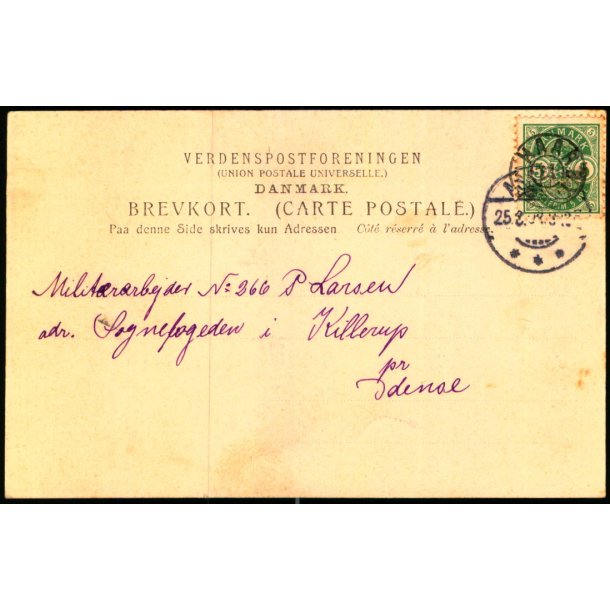 VERDENSPOSTFORENINGEN
(UNION POSTALE UNIVERSELLE.)
DANMARK.
BREVKORT. (CARTE POSTALE.)
Paa denne Side skrives kun Adressen Côté réservé à l'adresse.
Militærarbejder No 266 P Larsen
adr. Sognefogeden i Killerup
pr
Odense